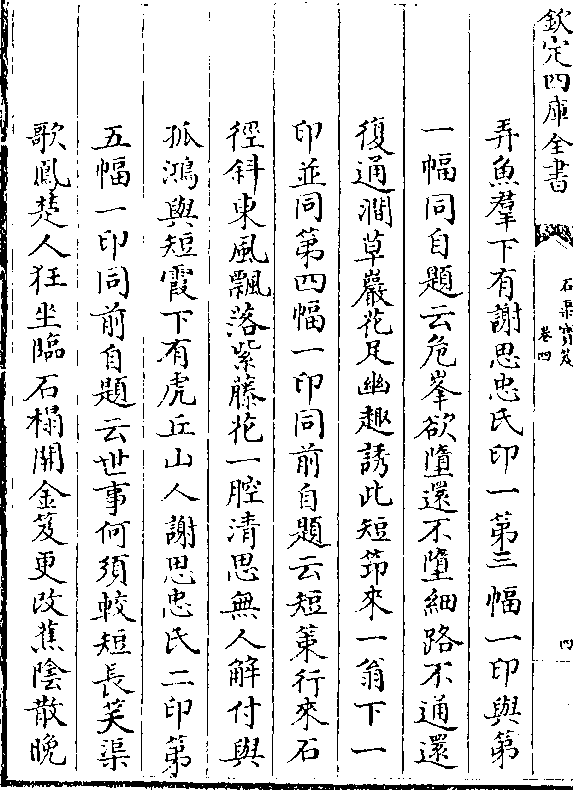 欽定四庫全書
石渠寶笈
卷四
四
弄魚羣下有謝思忠氏印一第三幅一印與第
一幅同自題云危峯欲墮還不墮細路不通還
復通澗草巖花足幽趣誘此短笻來一翁下一
印並同第四幅一印同前自題云短策行來石
徑斜東風飄落紫藤花一腔清思無人解付與
孤鴻與短霞下有虎丘山人謝思忠氏二印第
五幅一印同前自題云世事何須較短長笑渠
歌鳳楚人狂坐臨石榻開金笈更改蕉陰散晚